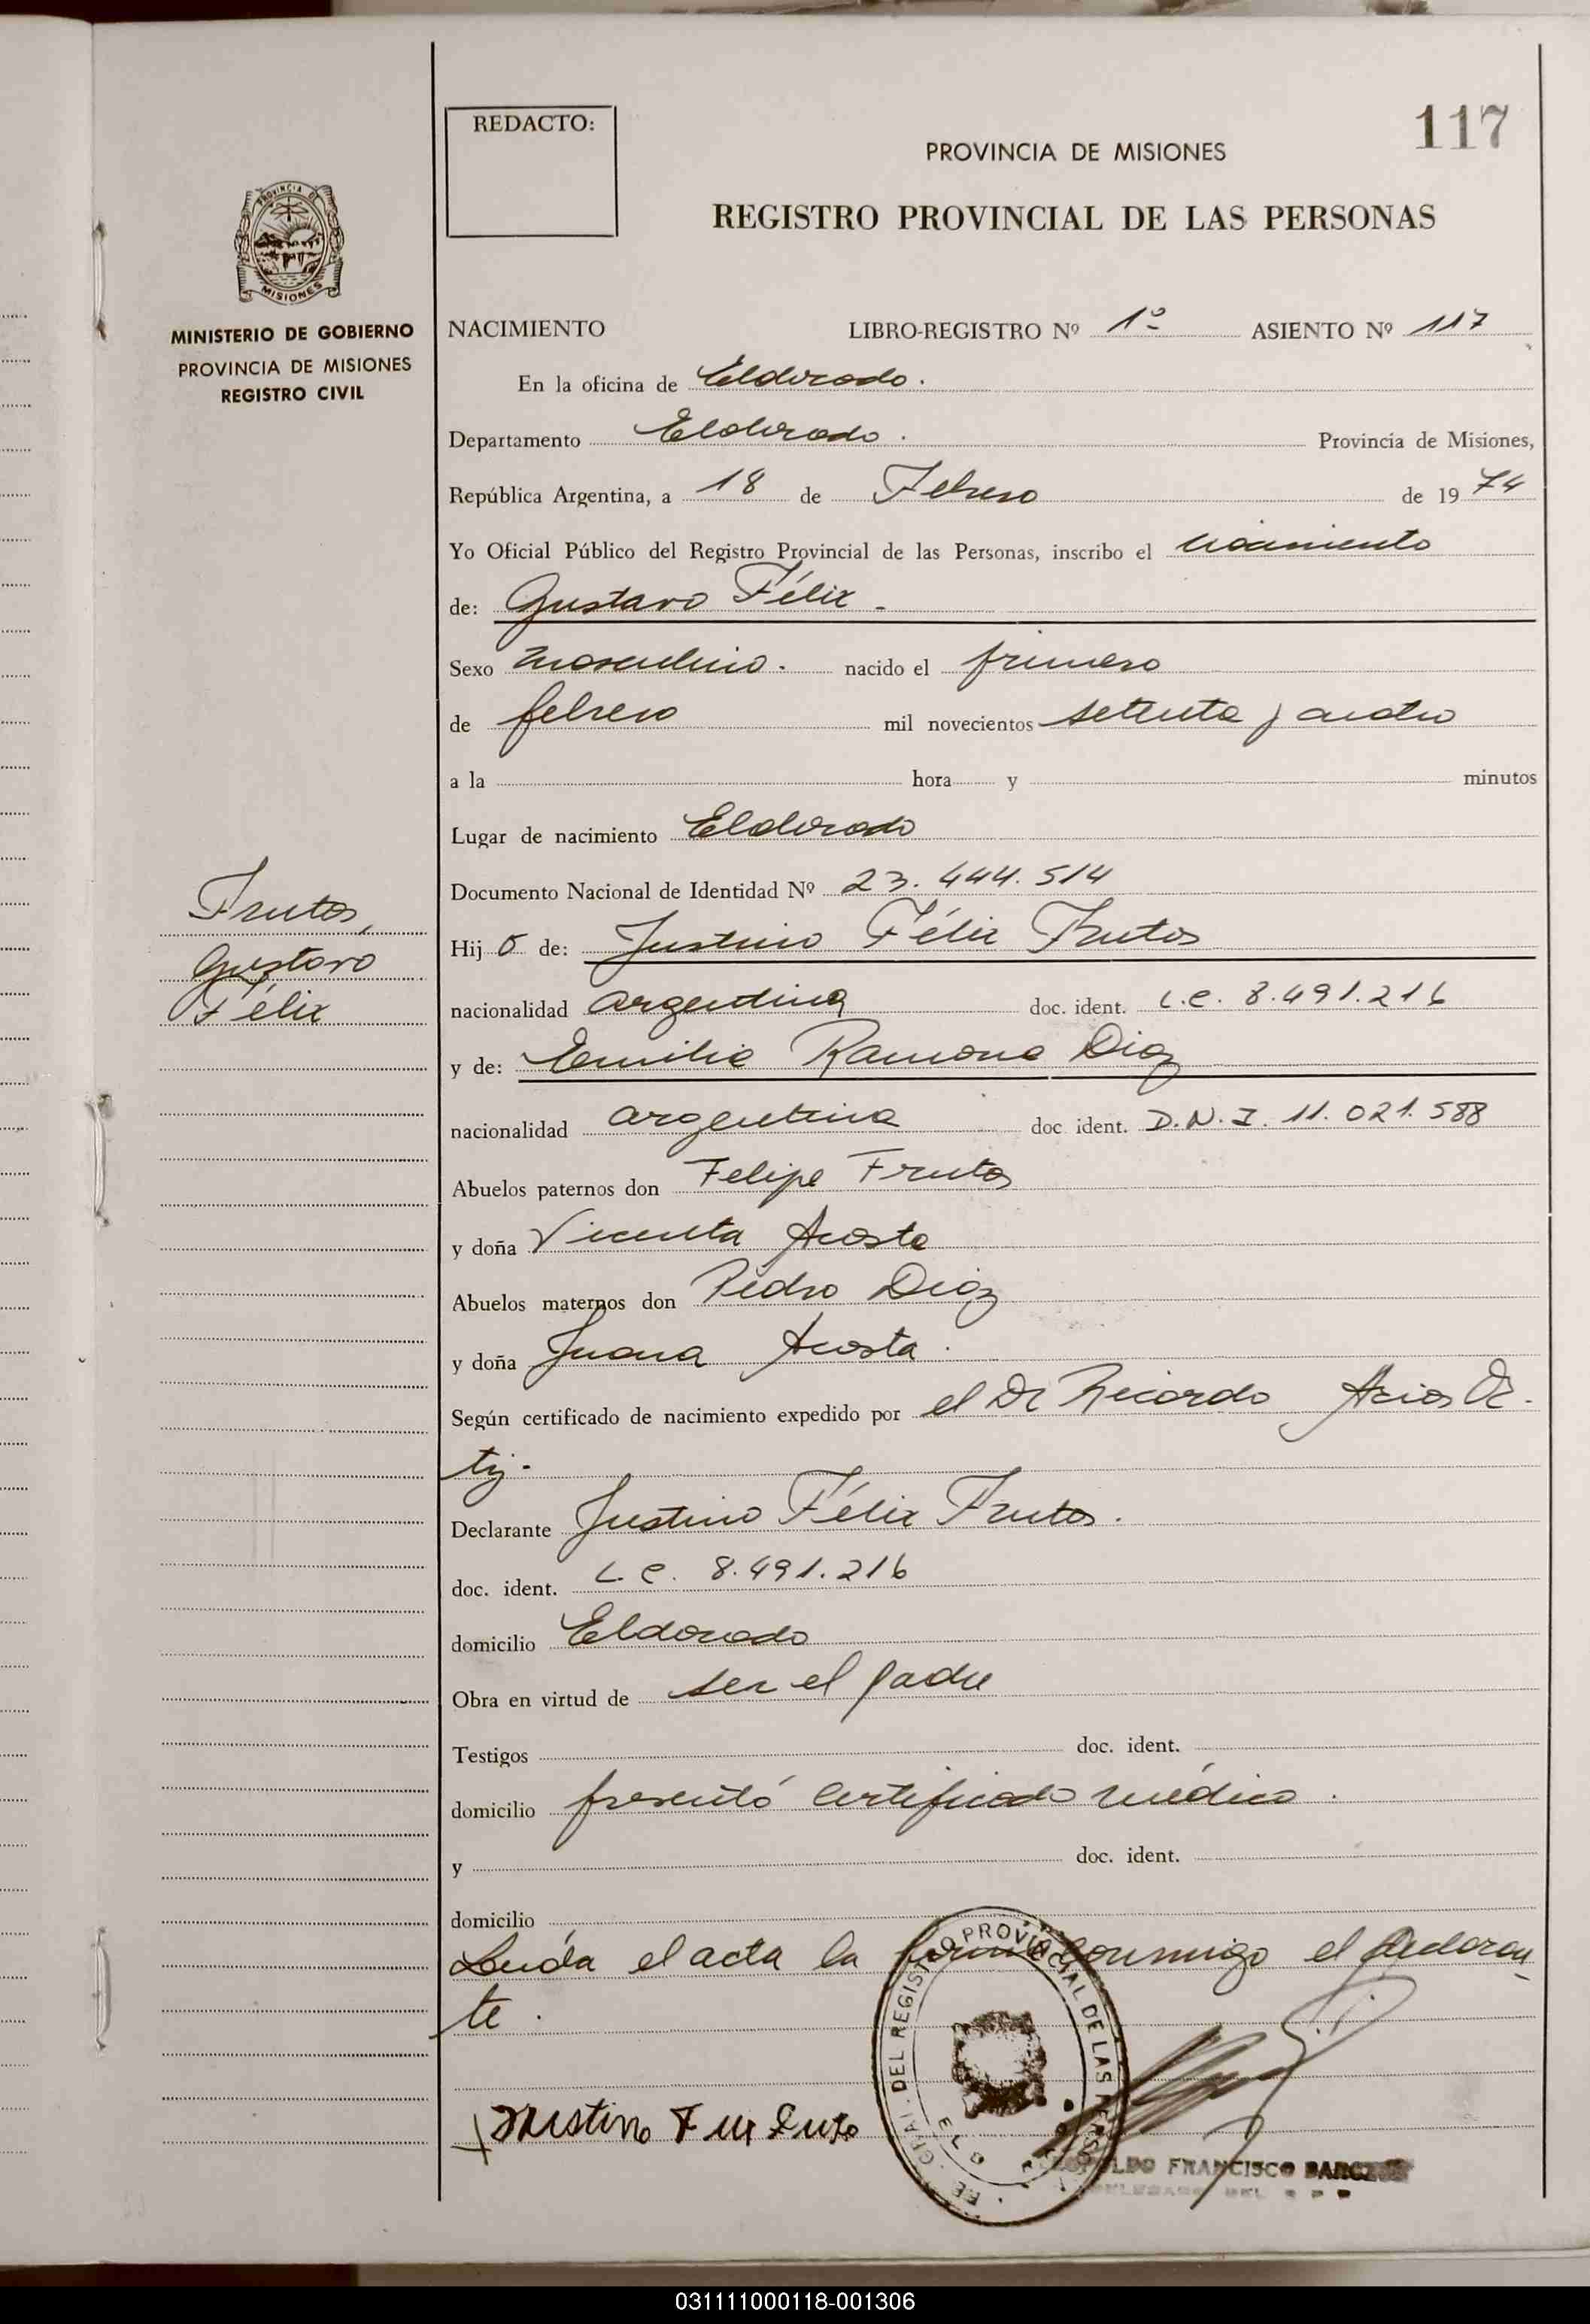 117
REDACTO:
PROVINCIA DE MISIONES
REGISTRO PROVINCIAL DE LAS PERSONAS
PROVINCIA DE
MISIONES
MINISTERIO DE GOBIERNO
PROVINCIA DE MISIONES
REGISTRO CIVIL
NACIMIENTO LIBRO-REGISTRO Nº 1º ASIENTO Nº 117
En la oficina de Eldorado.
Departamento Eldorado. Provincia de Misiones,
República Argentina, a 18 de Febrero de 1974
Yo Oficial Público del Registro Provincial de las Personas, inscribo el nacimiento
de: Gustavo Félix -
Sexo masculino. nacido el primero
de febrero mil novecientos setenta y cuatro
a la hora y minutos
Lugar de nacimiento Eldorado
Documento Nacional de Identidad Nº 23.444.514
Frutos,
Gustavo
Félix
Hijo de: Justino Félix Frutos
nacionalidad argentina doc. ident. L.E. 8.491.216
y de: Emilia Ramona Diaz
nacionalidad argentina doc ident. D.N.I. 11.021.588
Abuelos paternos don Felipe Frutos
y doña Vicenta Acosta
Abuelos maternos don Pedro Diaz
y doña Juana Acosta.
Según certificado de nacimiento expedido por el Dr Ricardo Arias Or-
tiz.
Declarante Justino Félix Frutos.
doc. ident. L.E. 8.491.216
domicilio Eldorado
Obra en virtud de ser el padre
Testigos doc. ident.
domicilio presentó certificado médico.
y doc. ident.
domicilio
Leída el acta la firma conmigo el declaran-
te.
GRAL. DEL REGISTRO PROVINCIAL DE LAS
FRANCISCO
031111000118-001306